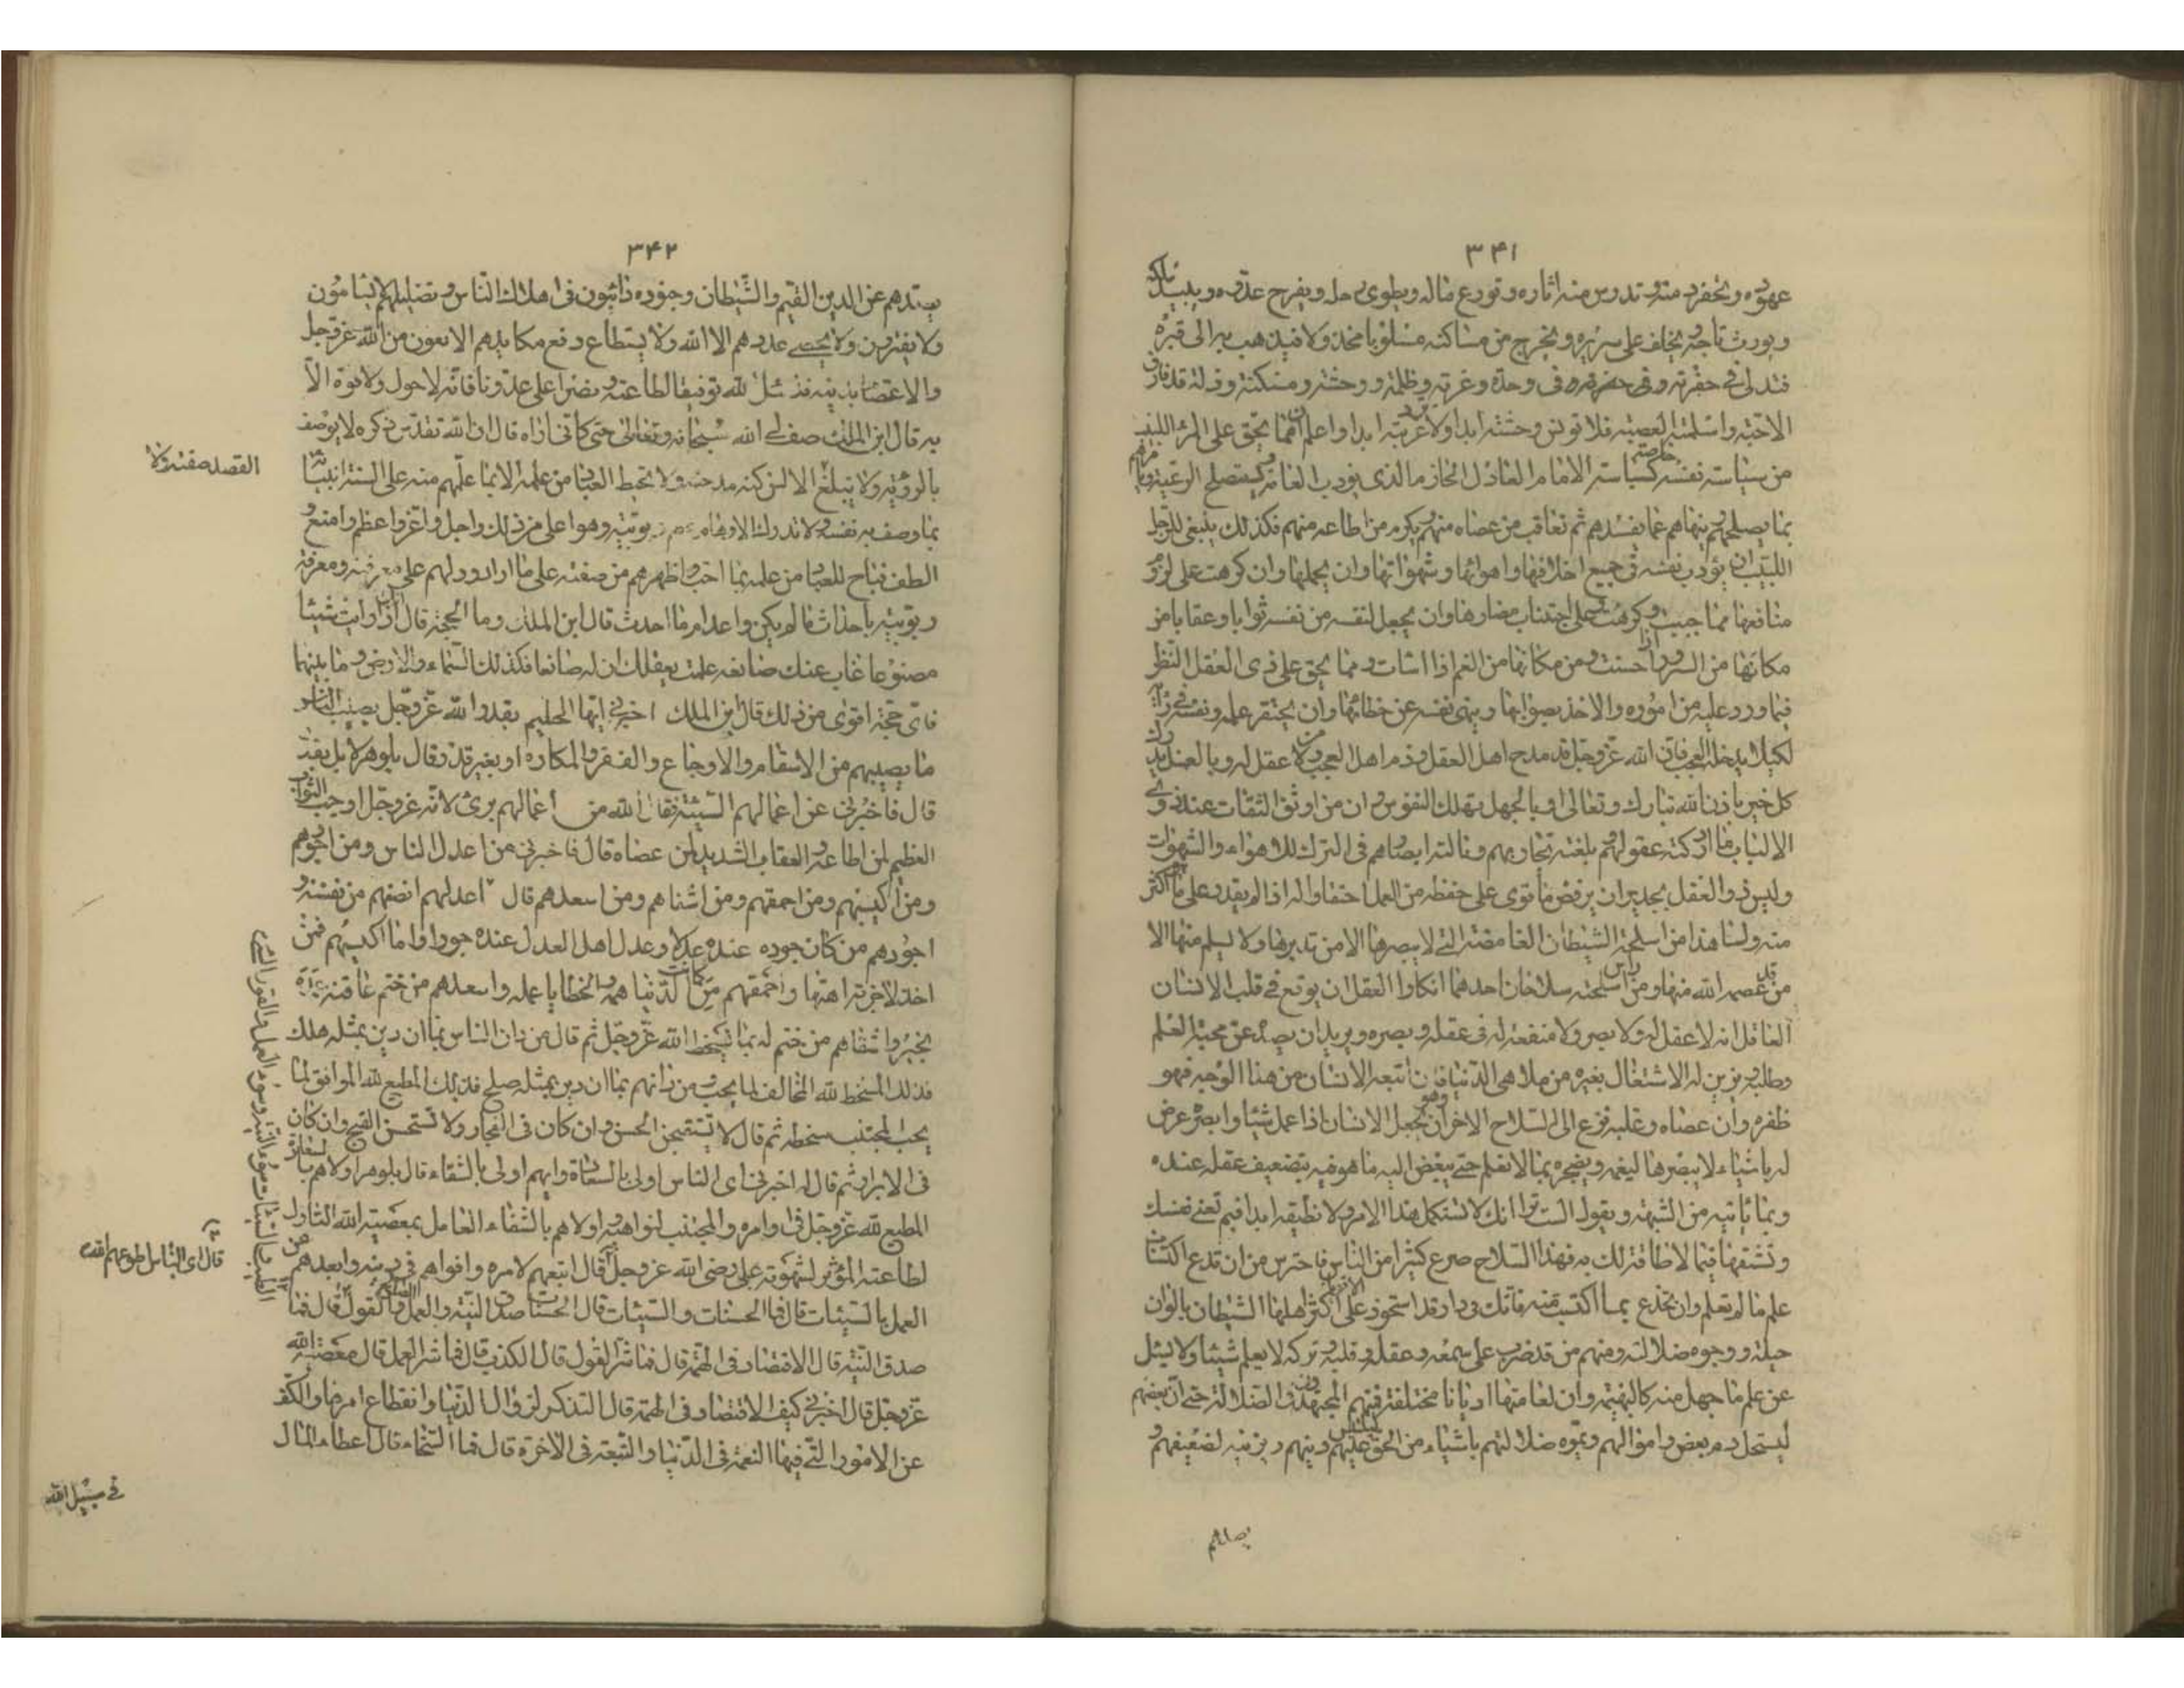 ۳۴۱
عهوده ويخفر ذمته وتدرس منه اثاره ويوزع ماله ويطوى رحله ويفرح عدوه ويبيد ملكه
ويورث تاجه يخلف على سريره ويخرج من مساكنه مسلوبا مخذولا فيذهب به الى قبره
فيدلى فى حفرته وفى وحدة وغربة وظلمة ووحشة ومسكنة وذلة قد فارق
الاحبة واسلمته العصبة فلا تونس وحشته ابدا ولا ترد غربته ابدا واعلم انها يحق على المرء اللبيب
من سياسة نفسه خاصة كسياسة الامام العادل الحازم الذى يودب العامة ويستصلح الرعية ويامرهم
بما يصلحهم وينهاهم عما يفسدهم ثم يعاقب من عصاه منهم ويكرم من اطاعه منهم فكذلك ينبغى للرجل
اللبيب ان يؤدب نفسه فى جميع اخلاقها واهوائها وشهواتها وان يحملها وان كرهت على لزوم
منافعها فيما احبت وكرهت وعلى اجتناب مضارها وان يجعل لنفسه من نفسه ثوابا وعقابا من
مكانها من السرور اذا احسنت ومن مكانها من الغم اذا اسات ومما يحق على ذى العقل النظر
فيما ورد عليه من اموره والاخذ بصوابها وينهى نفسه عن خطائها وان يحتقر علمه ونفسه فى رأيه
لكيلا يدخله العجب فان الله عز وجل قد مدح اهل العقل وذم اهل العجب ومن لا عقل له وبالعقل يدرك
كل خير باذن الله تبارك وتعالى وبالجهل تهلك النفوس وان من اوثق الثقات عند ذوى
الالباب ما ادركته عقولهم وبلغته تجاربهم ونالته ابصارهم فى الترك للاهواء والشهوات
وليس ذو العقل بجدير ان يرفض ما قوى على حفظه من العمل احتقارا له اذا لم يقدر على ما هو اكثر
منه وانما هذا من اسلحة الشيطان الغامضة التى لا يبصرها الا من تدبرها ولا يسلم منها الا
من قد عصمه الله منها ومن راس اسلحته سلاحان احدهما انكار العقل ان يوقع فى قلب الانسان
العاقل انه لا عقل له ولا بصر ولا منفعة له فى عقله وبصره ويريد ان يصده عن محبة العلم
وطلبه ويزين له الاشتغال بغيره من ملاهى الدنيا فان اتبعه الانسان من هذا الوجه فهو
ظفره وان عصاه وغلبه فزع الى السلاح الاخر وهو ان يجعل الانسان اذا عمل شيئا وابصر عرض
له باشياء لا يبصرها ليغمه ويضجره بما لا يعلم حتى يبغض اليه ما هو فيه بتضعيف عقله عنده
وبما ياتيه من الشبهة ويقول الست ترى انك لا تستكمل هذا الامر ولا تطيقه ابدا فبم تعنى نفسك
وتشقيها فيما لا طاقة لك به فبهذا السلاح صرع كثيرا من الناس فاحترس من ان تدع اكتساب
علم ما لم تعلم وان تخدع عما اكتسبت منه فانك فى دار قد استحوذ على اكثر اهلها الشيطان بالوان
حيله ووجوه ضلالته ومنهم من قد ضرب على سمعه وعقله وقلبه وتركه لا يعلم شيئا ولا يسئل
عن علم ما جهل منه كالبهيمة وان لعامتها اديانا مختلفة فمنهم المجتهدون فى الضلالة حتى ان بعضهم
ليستحل دم بعض واموالهم ويموه ضلالتهم باشياء من الحق ليلبس عليهم دينهم ويزينه لضعيفهم و
يصدهم
۳۴۲
يصدهم عن الدين القيم والشيطان وجنوده دائبون فى اهلاك الناس وتضليلهم لا يسامون
ولا يفترون ولا يحصى عددهم الا الله ولا يستطاع دفع مكايدهم الا بعون من الله عز وجل
والاعتصام بدينه فنسئل الله توفيقا لطاعته ونصرا على عدونا فانه لا حول ولا قوة الا
به قال ابن الملك صف لى الله سبحانه وتعالى حتى كانى اراه قال ان الله تقدس ذكره لا يوصف
بالرؤية ولا يبلغ الالسن كنه مدحته ولا يحيط العباد من علمه الا بما علمهم منه على السنة انبيائه
بما وصف به نفسه ولا تدرك الاوهام ربوبيته وهو اعلى من ذلك واجل واعز واعظم وامنع و
الطف فباح للعباد من علمه بما احب واظهرهم من صفته على ما اراد ودلهم على معرفته ومعرفة
ربوبيته باحداث ما لم يكن واعدام ما احدث قال ابن الملك وما الحجة قال اذا رايت شيئا
مصنوعا غاب عنك صانعه علمت بعقلك ان له صانعا فكذلك السماء والارض وما بينهما
فاى حجة اقوى من ذلك قال ابن الملك اخبرنى ايها الحكيم بقدر الله عز وجل يصيب الناس
ما يصيبهم من الاسقام والاوجاع والفقر والمكاره او بغير قدر قال بلوهر لا بل بقدر
قال فاخبرنى عن اعمالهم السيئة فقال الله من اعمالهم برئ لانه عز وجل اوجب الثواب
العظيم لمن اطاعه والعقاب الشديد لمن عصاه قال فاخبرنى من اعدل الناس ومن اجورهم
ومن اكيسهم ومن احمقهم ومن اشقاهم ومن اسعدهم قال اعدلهم انصفهم من نفسه و
اجورهم من كان جوره عنده عدلا وعدل اهل العدل عنده جورا واما اكيسهم فمن
اخذ لاخرته اهبتها واحمقهم من كانت الدنيا همه والخطايا عمله واسعدهم من ختم عاقبة عمله
بخير واشقاهم من ختم له بما يسخط الله عز وجل ثم قال من دان الناس بما ان دين بمثله هلك
فذلك المسخط لله المخالف لما يحب ومن دانهم بما ان دين بمثله صلح فذلك المطيع لله الموافق لما
يحب المجتنب سخطه ثم قال لا تستقبحن الحسن وان كان فى الفجار ولا تستحسن القبيح وان كان
فى الابرار ثم قال له اخبرنى اى الناس اولى بالسعادة وايهم اولى بالشقاء قال بلوهر اولاهم بالسعادة
المطيع لله عز وجل فى اوامره والمجتنب لنواهيه واولاهم بالشقاء العامل بمعصية الله التارك
لطاعته المؤثر لشهوته على رضى الله عز وجل قال اتبعهم لامره واقواهم فى دينه وابعدهم من
العمل بالسيئات قال فما الحسنات والسيئات قال الحسنات صدق النية والعمل والقول قال فما
صدق النية قال الاقتصاد فى الهمة قال فما شر القول قال الكذب قال فما شر العمل قال معصية الله
عز وجل قال اخبرنى كيف الاقتصاد فى الهمة قال التذكر لزوال الدنيا وانقطاع امرها والكف
عن الامور التى فيها النعمة فى الدنيا والتبعة فى الاخرة قال فما السخاء قال اعطاء المال
قال اى الناس اطوعهم لله
فى سبيل الله